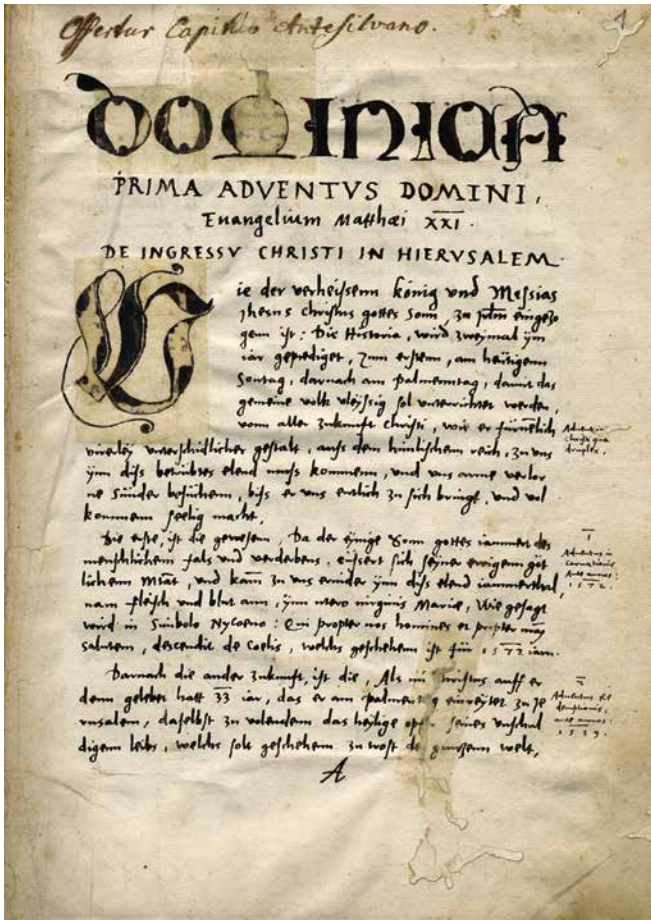 Offertur Capitulo Antesilvano.
1
DOMINICA
PRIMA ADVENTVS DOMINI,
Euangelium Matthæi XXI.
DE INGRESSV CHRISTI IN HIERVSALEM.
Wie der verheissenn könig vnd Messias
Jhesus Christus gottes Sonn, zu eingezo
genn ist: Die Historia, wird zweymal ym
iar geprediget, Zum erstenn, am heutigenn
Sontag, darnach am palmenntag, damit das
gemeine volk vleyssig sol vnterrichtet werden,
vonn aller Zukunfft Christi, wie er fürnemlich
Aduentus
Christi qua
druplex.
viererley vnterschidlicher gestalt, aufs dem himlischenn reich, zu vns
ynn difs betrübtes elend mufs kommenn, vnd vns arme verlor
ne Sünder besüchenn, bifs er vns entlich zu sich bringt, vnd vol
kommenn seelig macht.
Die erste, ist die gewesenn, Da der eynige Sonn gottes iammert des
I
Aduentus in
carnationis
Ante annos:
1572.
menschlichenn fals vnd verderbens, eussert sich seyner ewigenn göt
lichenn Miāt, vnd kam̄ zu vns ernider ynn difs elend iammerthal,
nam fleisch vnd blut ann, ynn vtero virginis Mariæ, Wie gesagt
wird in Simbolo Nycoeno: Qui propter nos homines et propter nr̄ā
salutem, descendit de Coelis, welchs geschehenn ist für 1572 iarn.
Darnach die ander Zukunfft, ist die, Als nu Christus auff er
2
Aduentus
ante annos:
1539.
denn gelebet hatt 33 iar, das er am palmentag einreytet zu Je
rusalem, daselbst zu volendenn das heylige opfer seines vnschul
digenn leibs, welchs solt geschehenn zu trost der gantzenn welt,
A